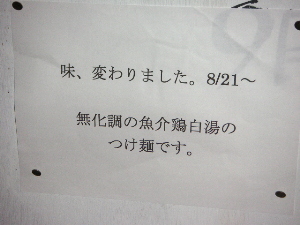 味、変わりました。8/21～
無化調の魚介鶏白湯の
つけ麺です。